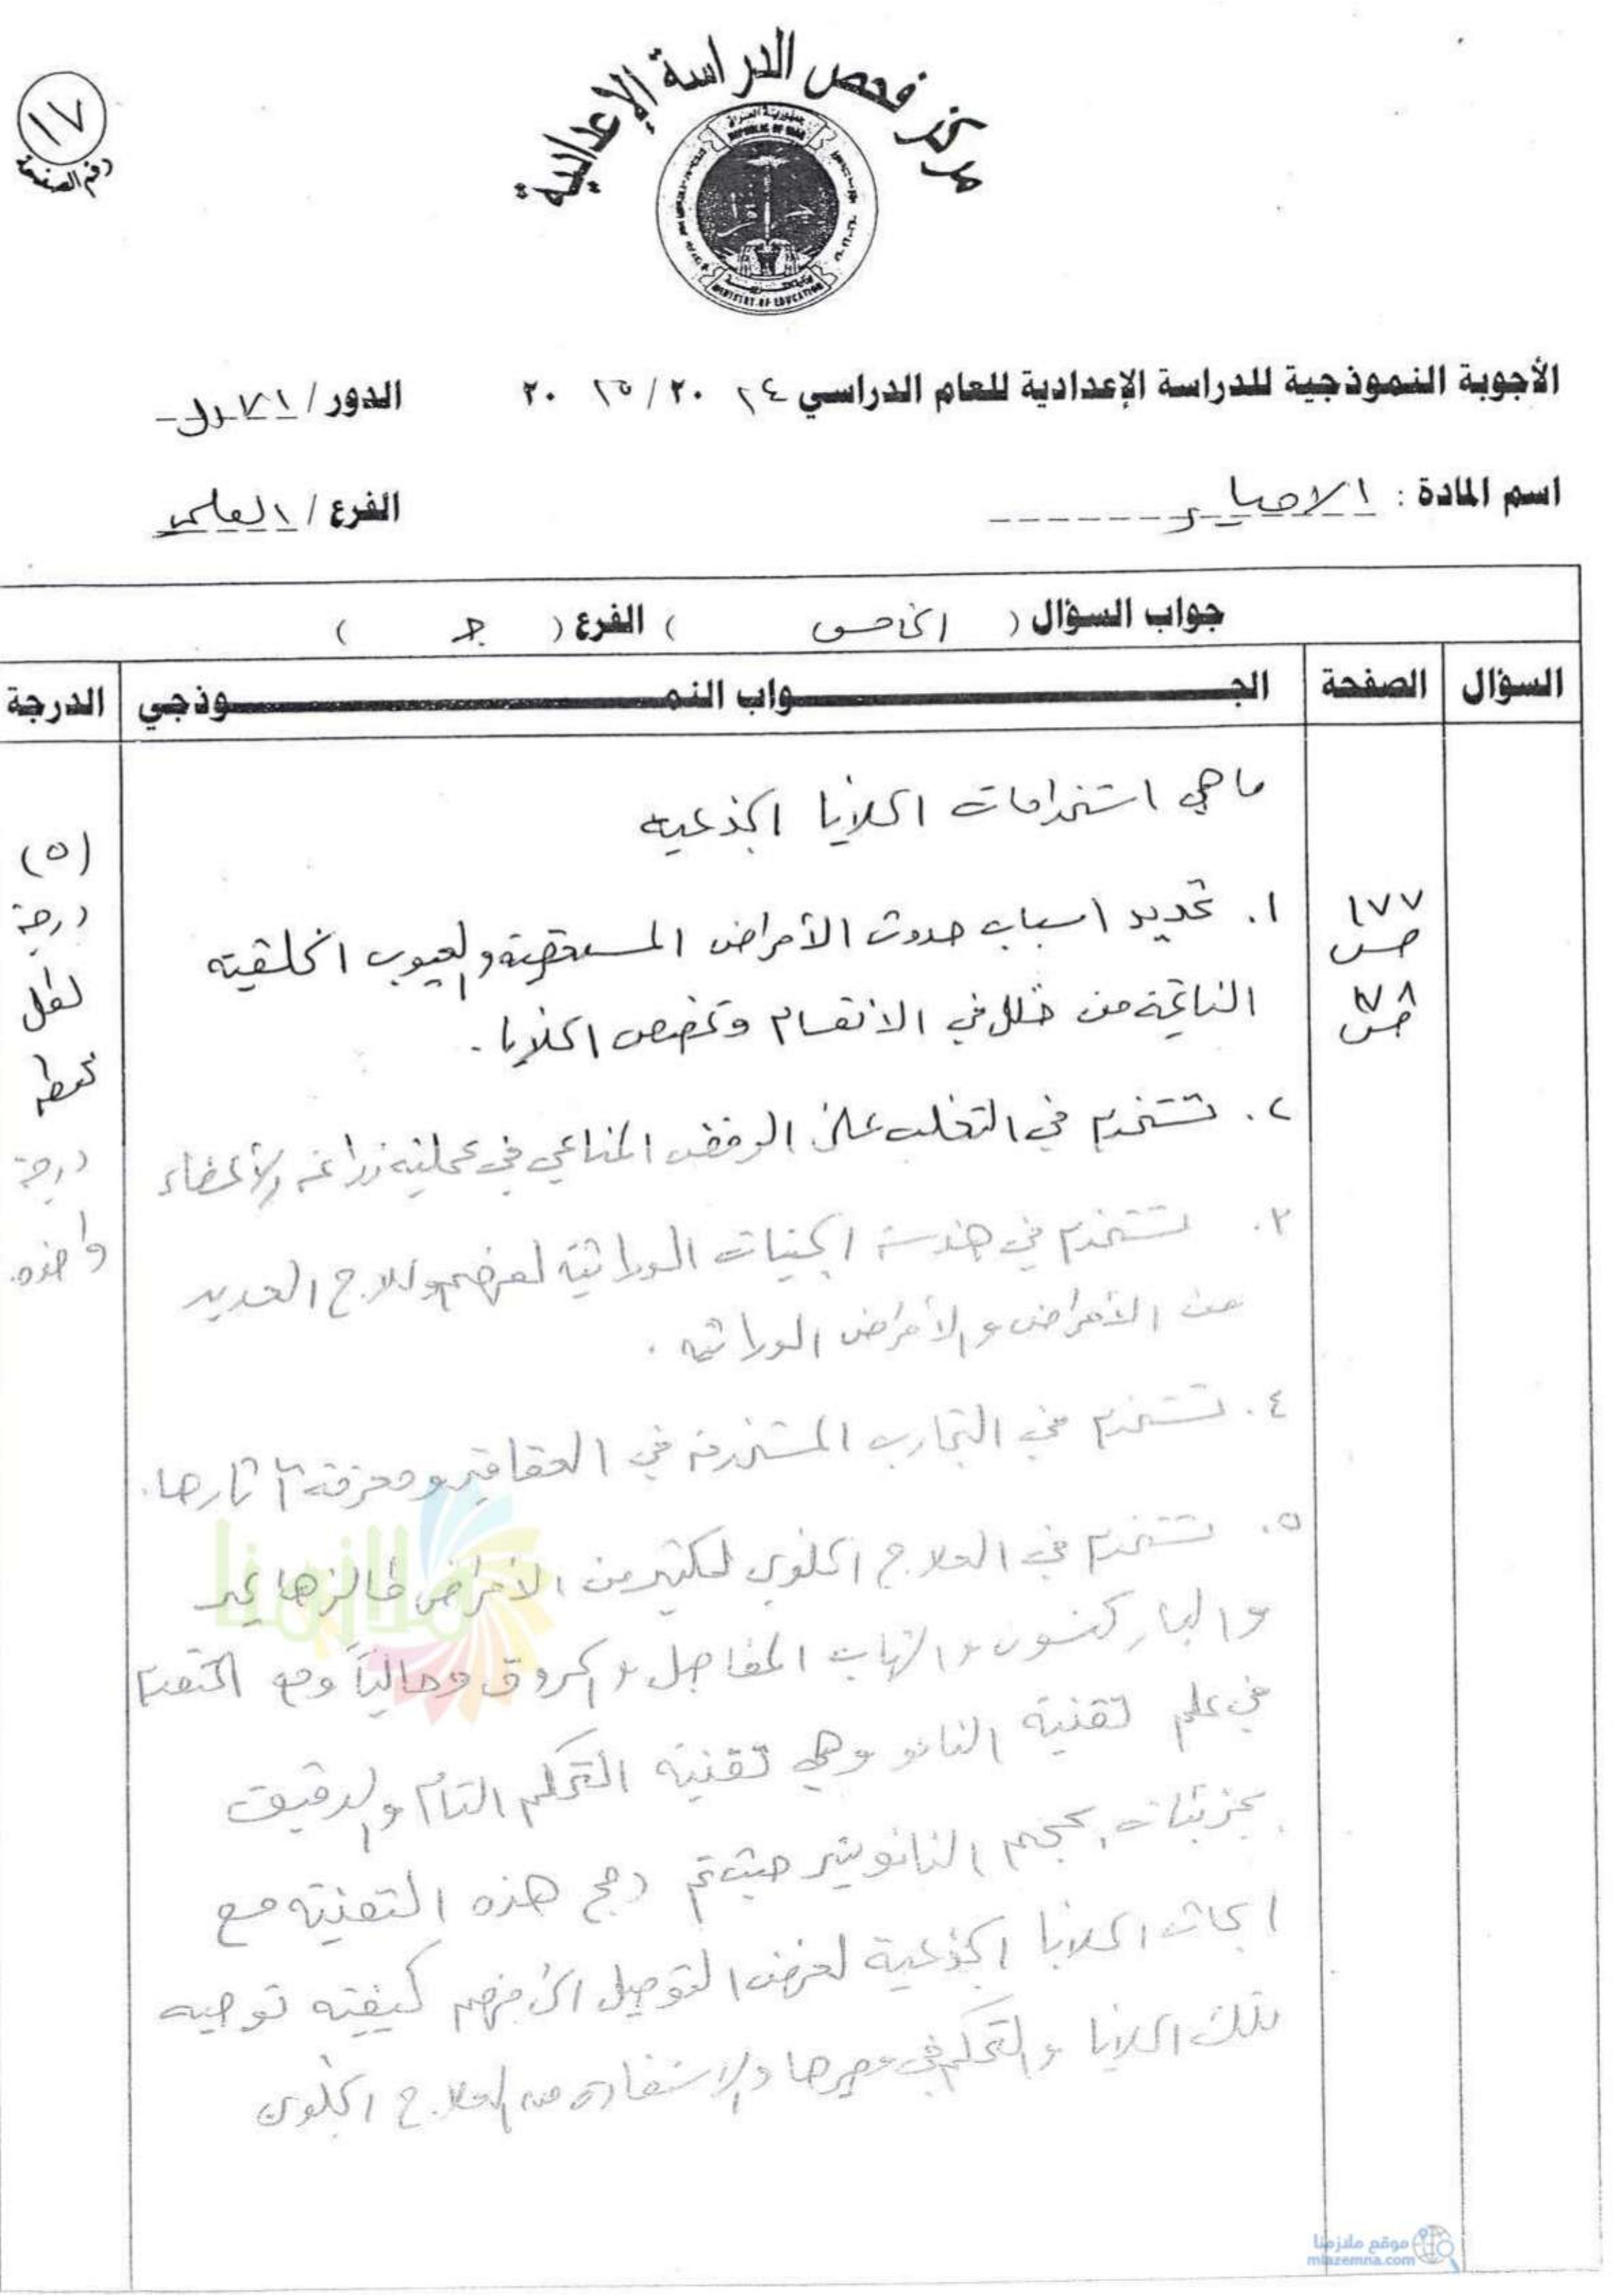 مركز فحص الدراسة الإعدادية
جمهورية العراق
REPUBLIC OF IRAQ
MINISTRY OF EDUCATION
١٧
رقم الصفحة
الأجوبة النموذجية للدراسة الإعدادية للعام الدراسي ٢٤ ٢٠ / ٢٥ ٢٠ الدور / الاول
اسم المادة : الاحياء الفرع / العلمي
جواب السؤال ( الخامس ) الفرع ( جـ )
السؤال الصفحة الجـــواب النمـــوذجي الدرجة
ما هي استخدامات الخلايا الجذعيه
١. تحديد اسباب حدوث الأمراض المستعصية والعيوب الخلقية
الناتجة من خلل في الانقسام وتخصص الخلايا.
٢. تستخدم في التغلب على الرفض المناعي في عملية زراعة الأعضاء
٣. تستخدم في هندسة الجينات الوراثية لفهم وعلاج العديد
من الأمراض والأمراض الوراثيه .
٤. تستخدم في التجارب المستخدمة في العقاقير ومعرفة آثارها.
٥. تستخدم في العلاج الخلوي لكثير من الامراض كالزهايمر
والباركنسون والتهاب المفاصل والحروق وحالياً ومع التقدم
في علم تقنية النانو وهي تقنية التحكم التام والدقيق
بجزيئات بحجم النانوميتر حيث تم دمج هذه التقنية مع
ابحاث الخلايا الجذعية لغرض التوصل الى فهم كيفية توجيه
تلك الخلايا والتحكم في مصيرها والاستفادة من العلاج الخلوي
١٧٧
ص
١٧٨
ص
(٥)
درجة
لكل
نقطه
درجة
واحده.
ملازمنا
موقع ملازمنا
mlazemna.com